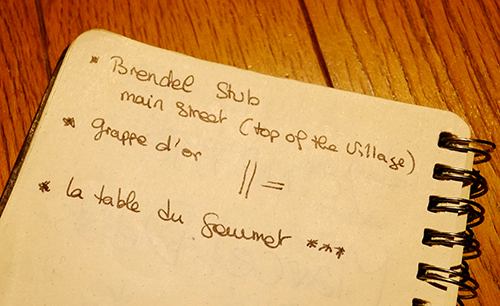 * Brendel Stub
main street (top of the village)
* grappe d'or
|| =
* la table du Gourmet ***